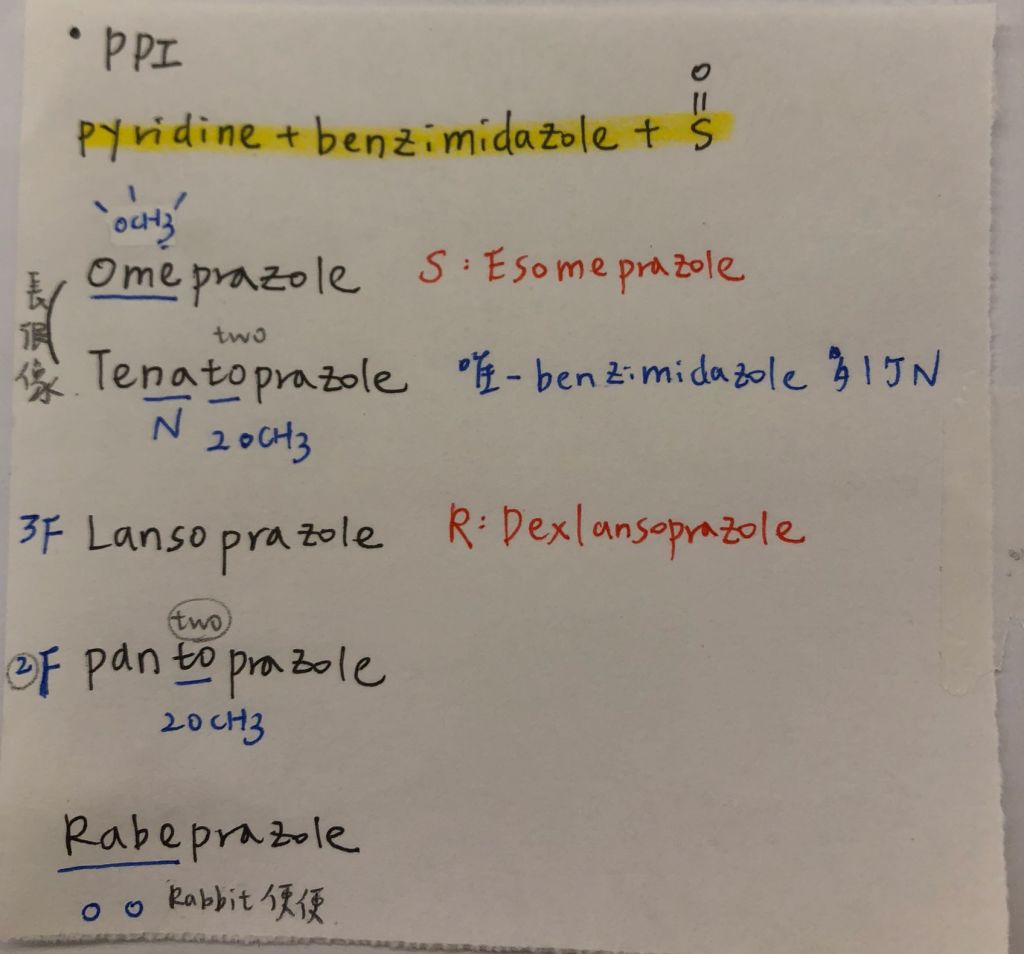 • PPI
O
=
pyridine + benzimidazole + S
OCH3
Omeprazole S : Esomeprazole
長很像
two
Tenatoprazole 唯一 benzimidazole 多1個N
N 2OCH3
3F Lansoprazole R: Dexlansoprazole
two
2F pantoprazole
2OCH3
Rabeprazole
o o Rabbit 便便